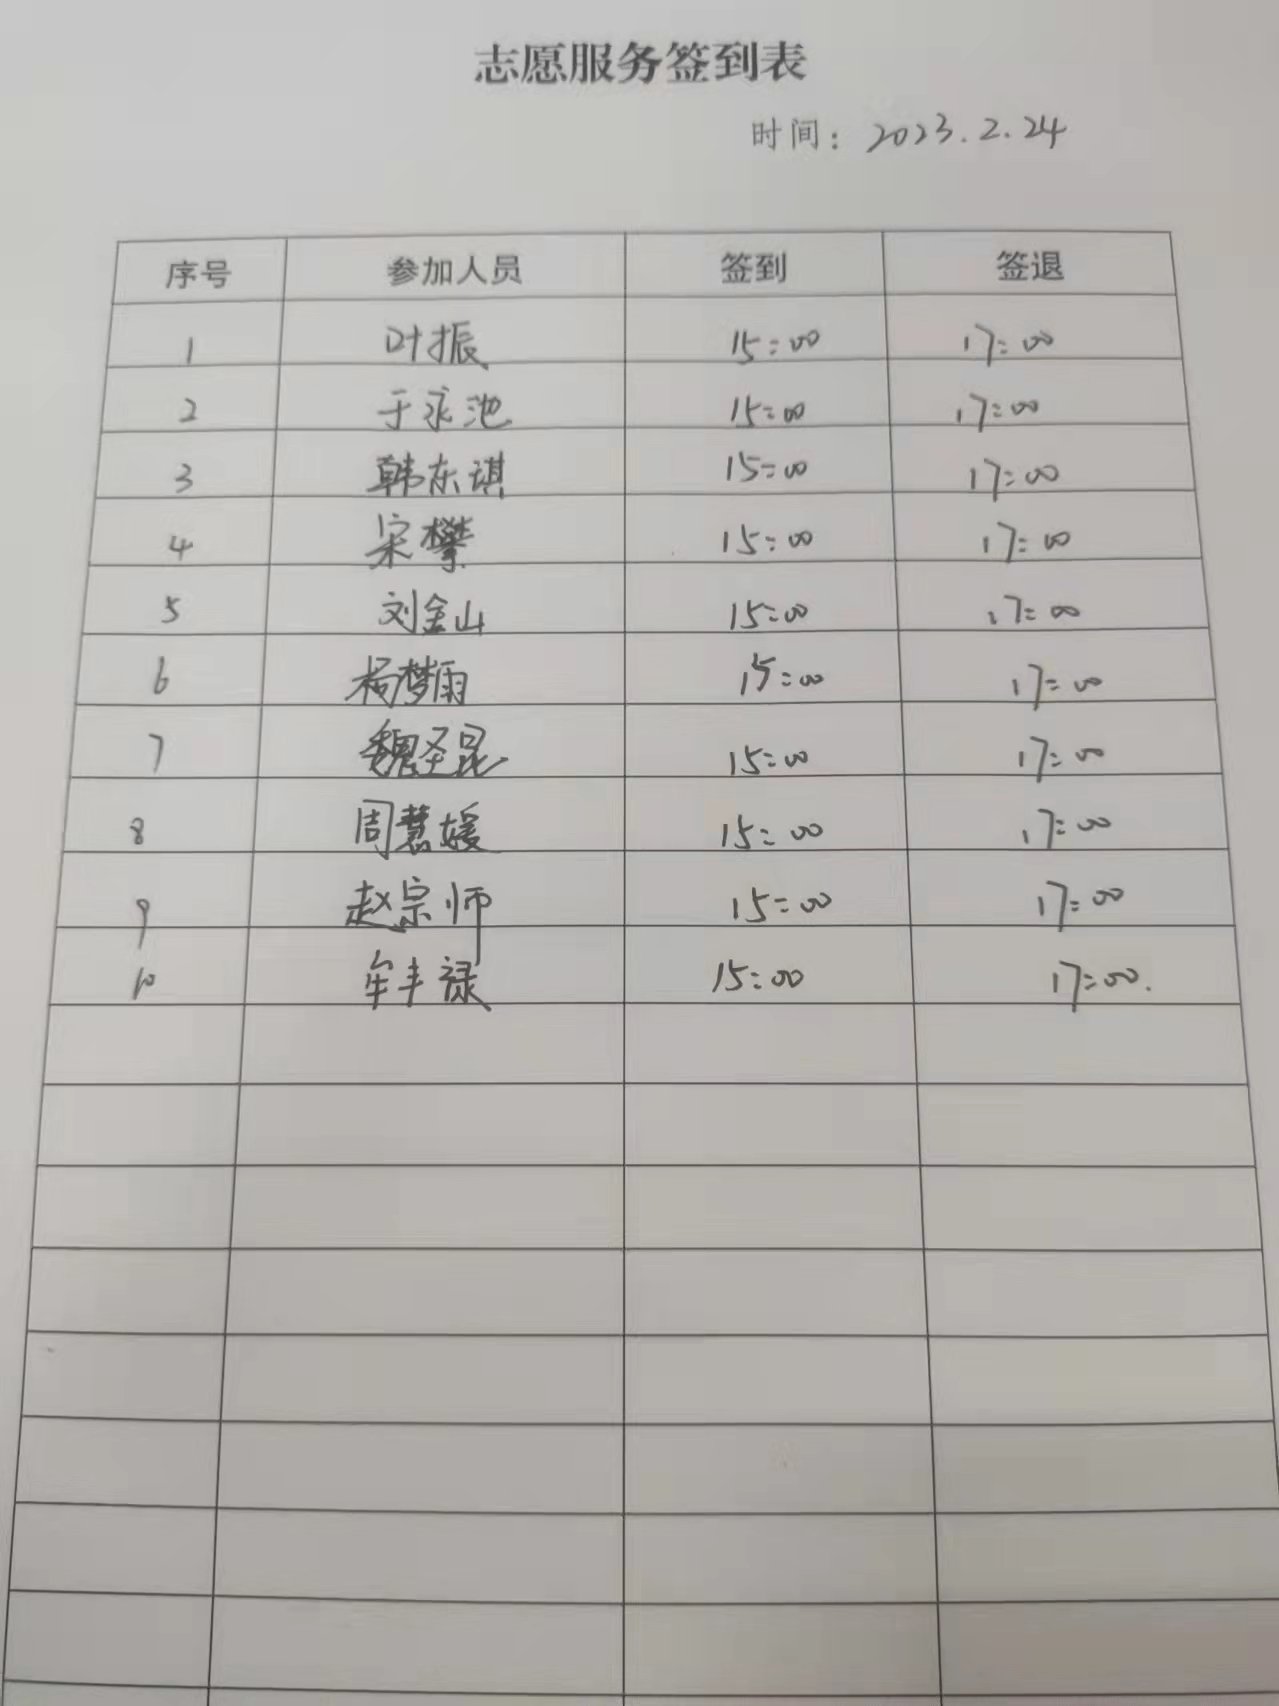 志愿服务签到表
时间：2023.2.24
序号 参加人员 签到 签退
1 叶振 15:00 17:00
2 于永池 15:00 17:00
3 韩东琪 15:00 17:00
4 宋攀 15:00 17:00
5 刘金山 15:00 17:00
6 杨梦雨 15:00 17:00
7 魏圣昆 15:00 17:00
8 周慧媛 15:00 17:00
9 赵宗师 15:00 17:00
10 牟丰禄 15:00 17:00.